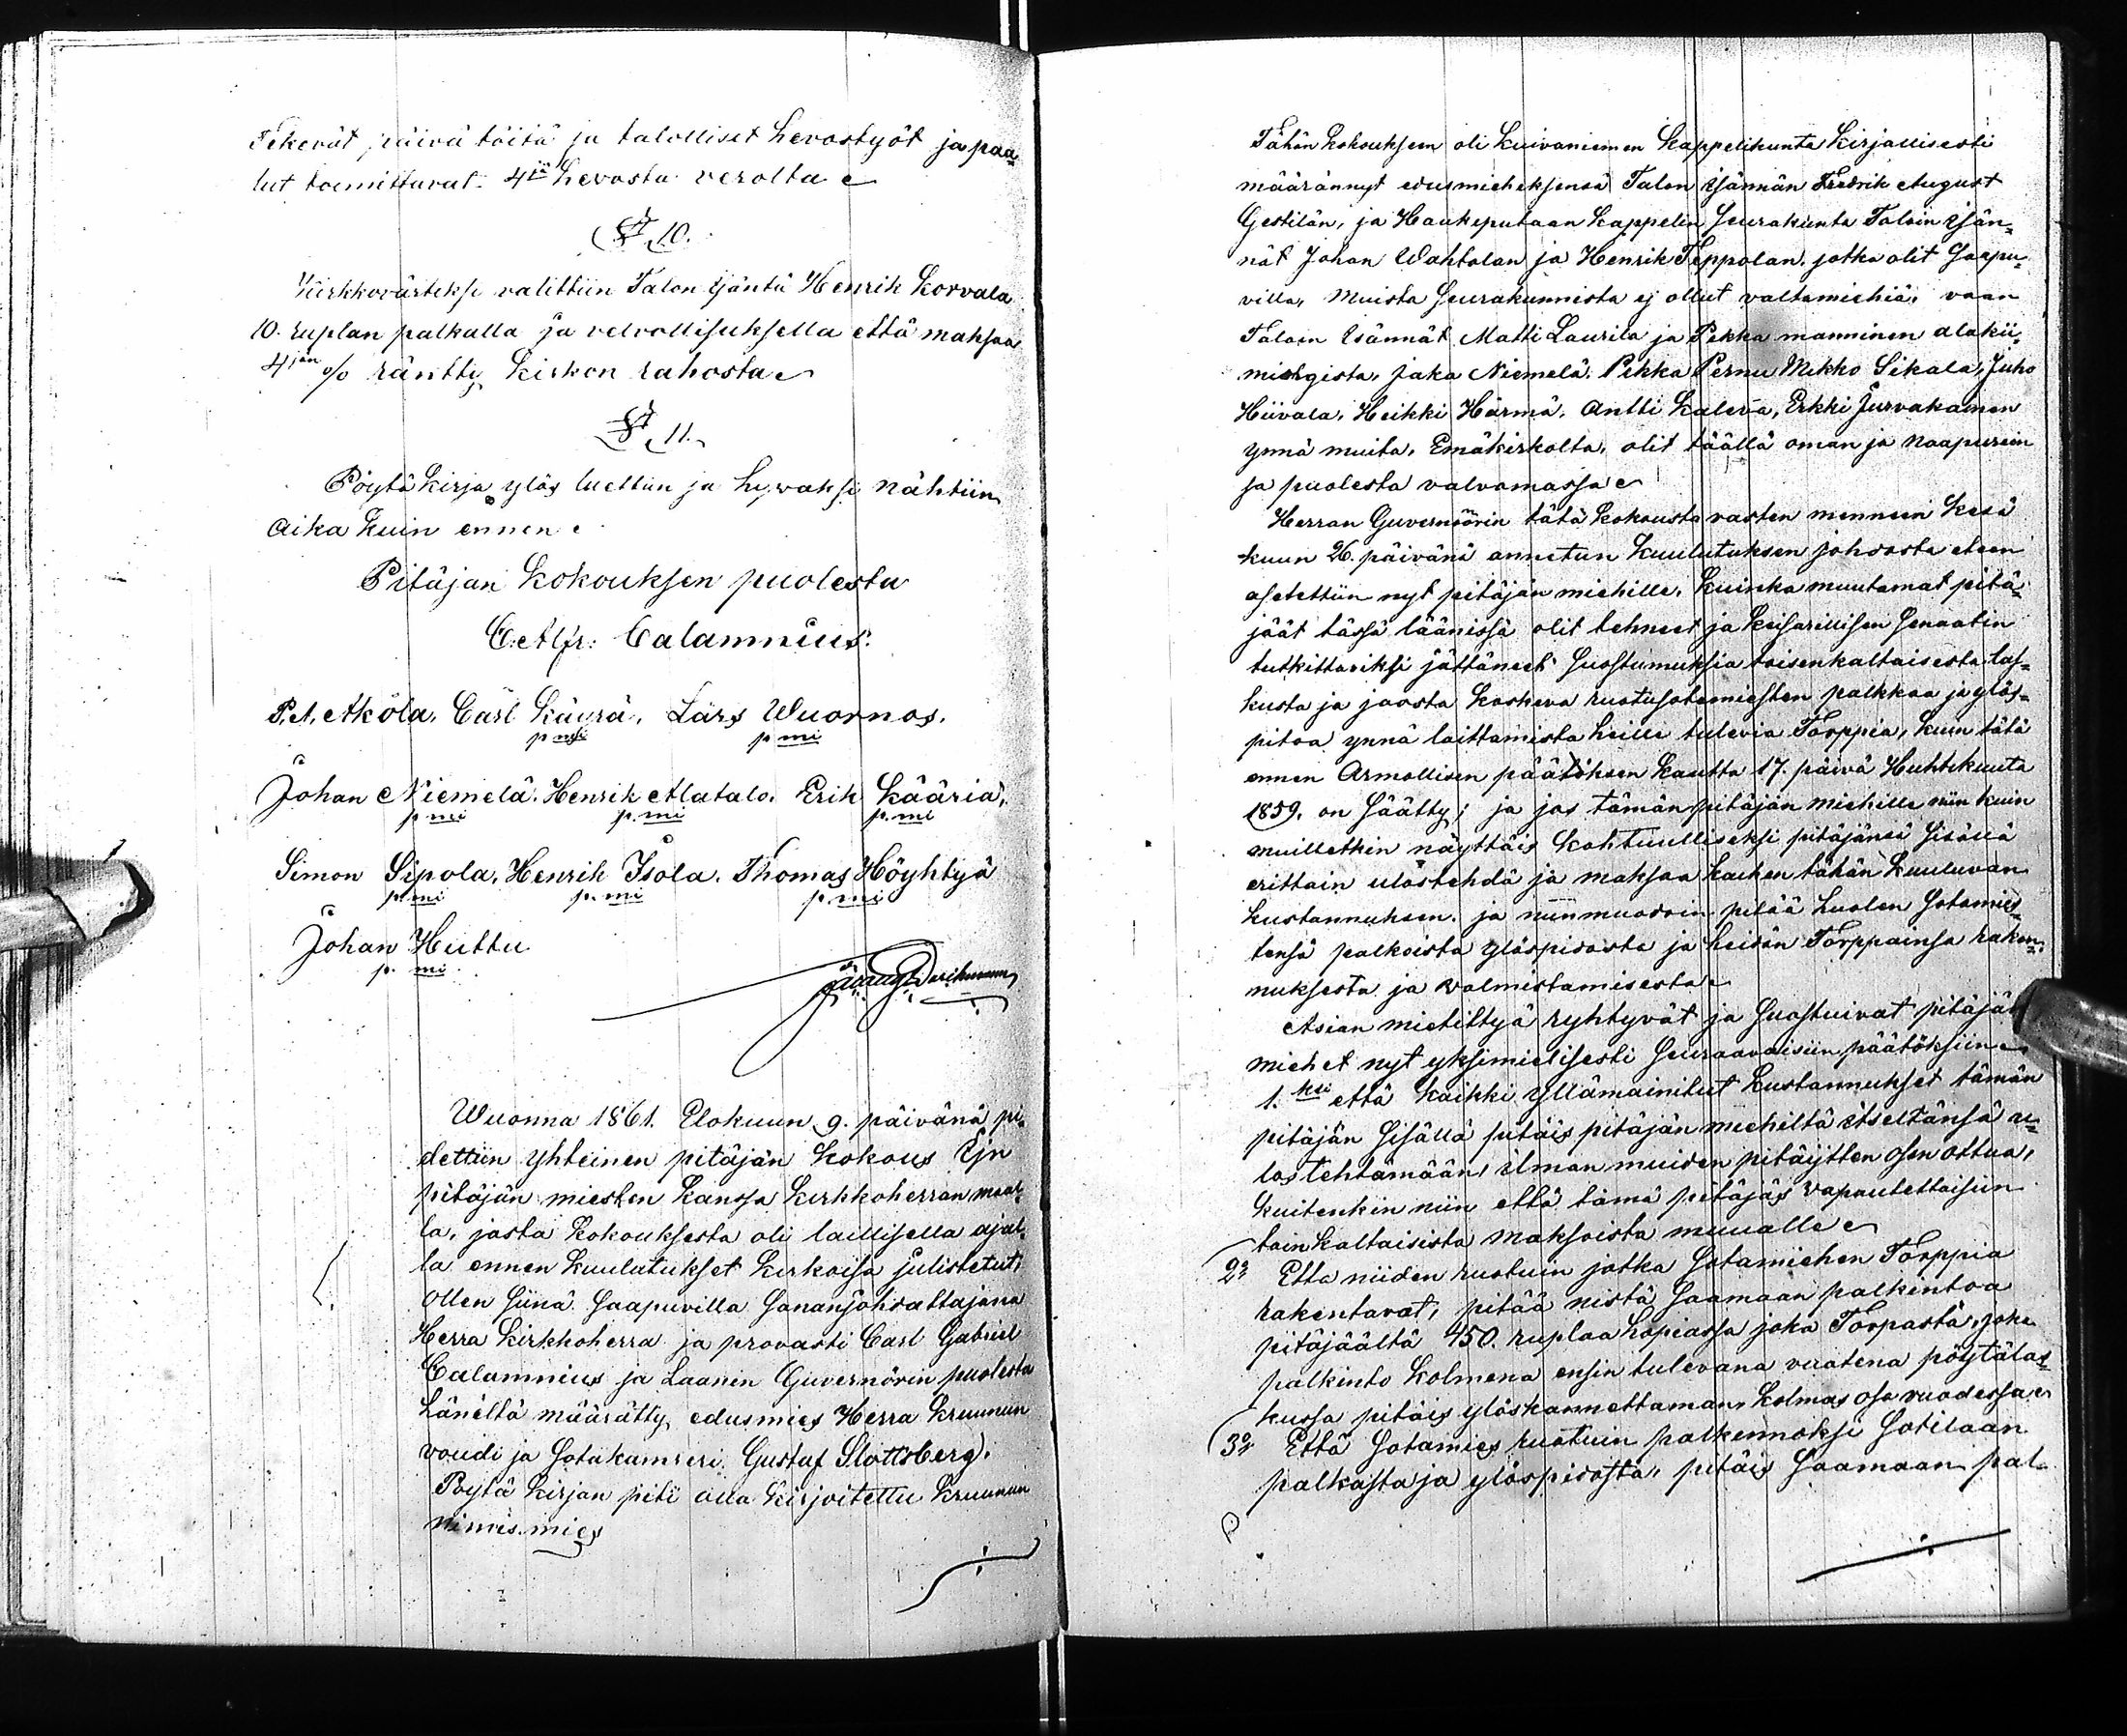 Tekevät päivä töitä ja talolliset hevostyöt ja paa¬
lut toimittavat 4iä hevosta verolta
§ 10.
Kirkkovärtiksi valittiin Talon Isäntä Henrik Korvala
10. ruplan palkalla ja velvollisuksella että maksaa
4jän % ränttty kirkon rahosta
§ 11.
Pöytä kirja ylös luettiin ja hyvaksi nähtiin
aika kuin ennen.
Pitäjan kokouksen puolesta
C. Alfr: Calamnius:
P. A. Akola, Carl Käyrä, Lars Wuornos.
p mi p mi
Johan Niemelä. Henrik Alatalo. Erik Kääriä,
p mi p. mi p. mi
Simon Sipola, Henrik Isola. Thomas Höyhtyä
p. mi p. mi p. mi
Johan Huttu
p. mi
Wuonna 1861. Elokuun 9. päivänä pi¬
dettiin yhteinen pitäjän kokous Ejn
pitäjän miesten kanssa kirkkoherran maal¬
la, josta kokouksesta oli laillisella ajal¬
la ennen kuulutukset kirkoisa julistetut;
Ollen siinä saapuvilla sananjohdattajana
Herra kirkkoherra ja provasti Carl Gabriel
Calamnius ja Laanin Guvernörin puolesta
häneltä määrätty edusmies Herra kruunun
voudi ja sotakamreri Gustaf Slottsberg.
Poytä kirjan piti alla kirjoitettu kruunun
nimis mies
Tähän kokouksem oli Kuivaniemen kappelikunta kirjallisesti
määrännyt edusmieheksensä Talon isännän Fredrik August
Gestilän, ja Haukeputaan kappelin seurakunta Taloin isän¬
nät Johan Wahtolan ja Henrik Teppolan. jotka olit saapu¬
villa, Muista seurakunnista ej ollut valtamiehiä, vaan
Taloin Isännät Matti Laurila ja Pekka manninen alakii¬
mingista, jaka Niemelä. Pekka Pernu Mikko Sikala, Juho
Hiivala, Heikki Härmä. Antti Kaleva, Erkki Jurvakainen
ynnä muita, Emäkirkolta, olit täällä oman ja naapurein
sa puolesta valvomassa
Herran Guvernöörin tätä kokousta vasten menneen kesä
kuun 26. päivänä annetun kuulutuksen johdosta eteen
asetettiin nyt pitäjän miehille, kuinka muutamat pitä¬
jäät tässä läänissä olit tehneet ja keisarillisen senaatin
tutkittaviksi jättäneet suostumuksia toisenkaltaisesta las¬
kusta ja jaosta koskeva ruotusotamiesten palkkaa ja ylös¬
pitoa ynnä laittamista heille tulevia Torppia, kuin tätä
ennen Armollisen päätöksen kautta 17. päivä Huhtikuuta
1859. on säätty; ja jos tämän pitäjän miehille niin kuin
muilletkin näyttäis kohtuulliseksi pitäjänsä sisällä
erittain ulostehdä ja maksaa kaiken tähän kuuluvan
kustannuksen. ja niinmuodoin pitää huolen sotamies¬
tensä palkoista ylöspidosta ja heidän Torppainsa raken¬
nuksesta ja valmistamisesta
Asian mietittyä ryhtyvät ja suostuivat pitäjän
miehet nyt yksimielisesti seuraavaisiin päätöksiin
1.ksi että kaikki yllämainitut kustannukset tämän
pitäjän sisällä pitäis pitäjän miehiltä itseltänsä u¬
lostehtämään, ilman muiden pitäjitten osen ottua,
kuitenkin niin että tämä pitäjäs vapautettaisiin
tainkaltaisista maksoista muualle
2: Etta niiden ruotuin jotka sotamiehen Torppia
rakentavat, pitää nistä saamaan palkintoa
pitäjäältä 450. ruplaa hopiassa joka Torpasta, joka
palkinto kolmena ensin tulevana vuotena pöytälas¬
kussa pitäis ylöskannettaman kolmas osa vuodessa
3: Että sotamies ruotuin palkennoksi sotilaan
palkasta ja ylöspidosta, pitäis saamaan pal¬